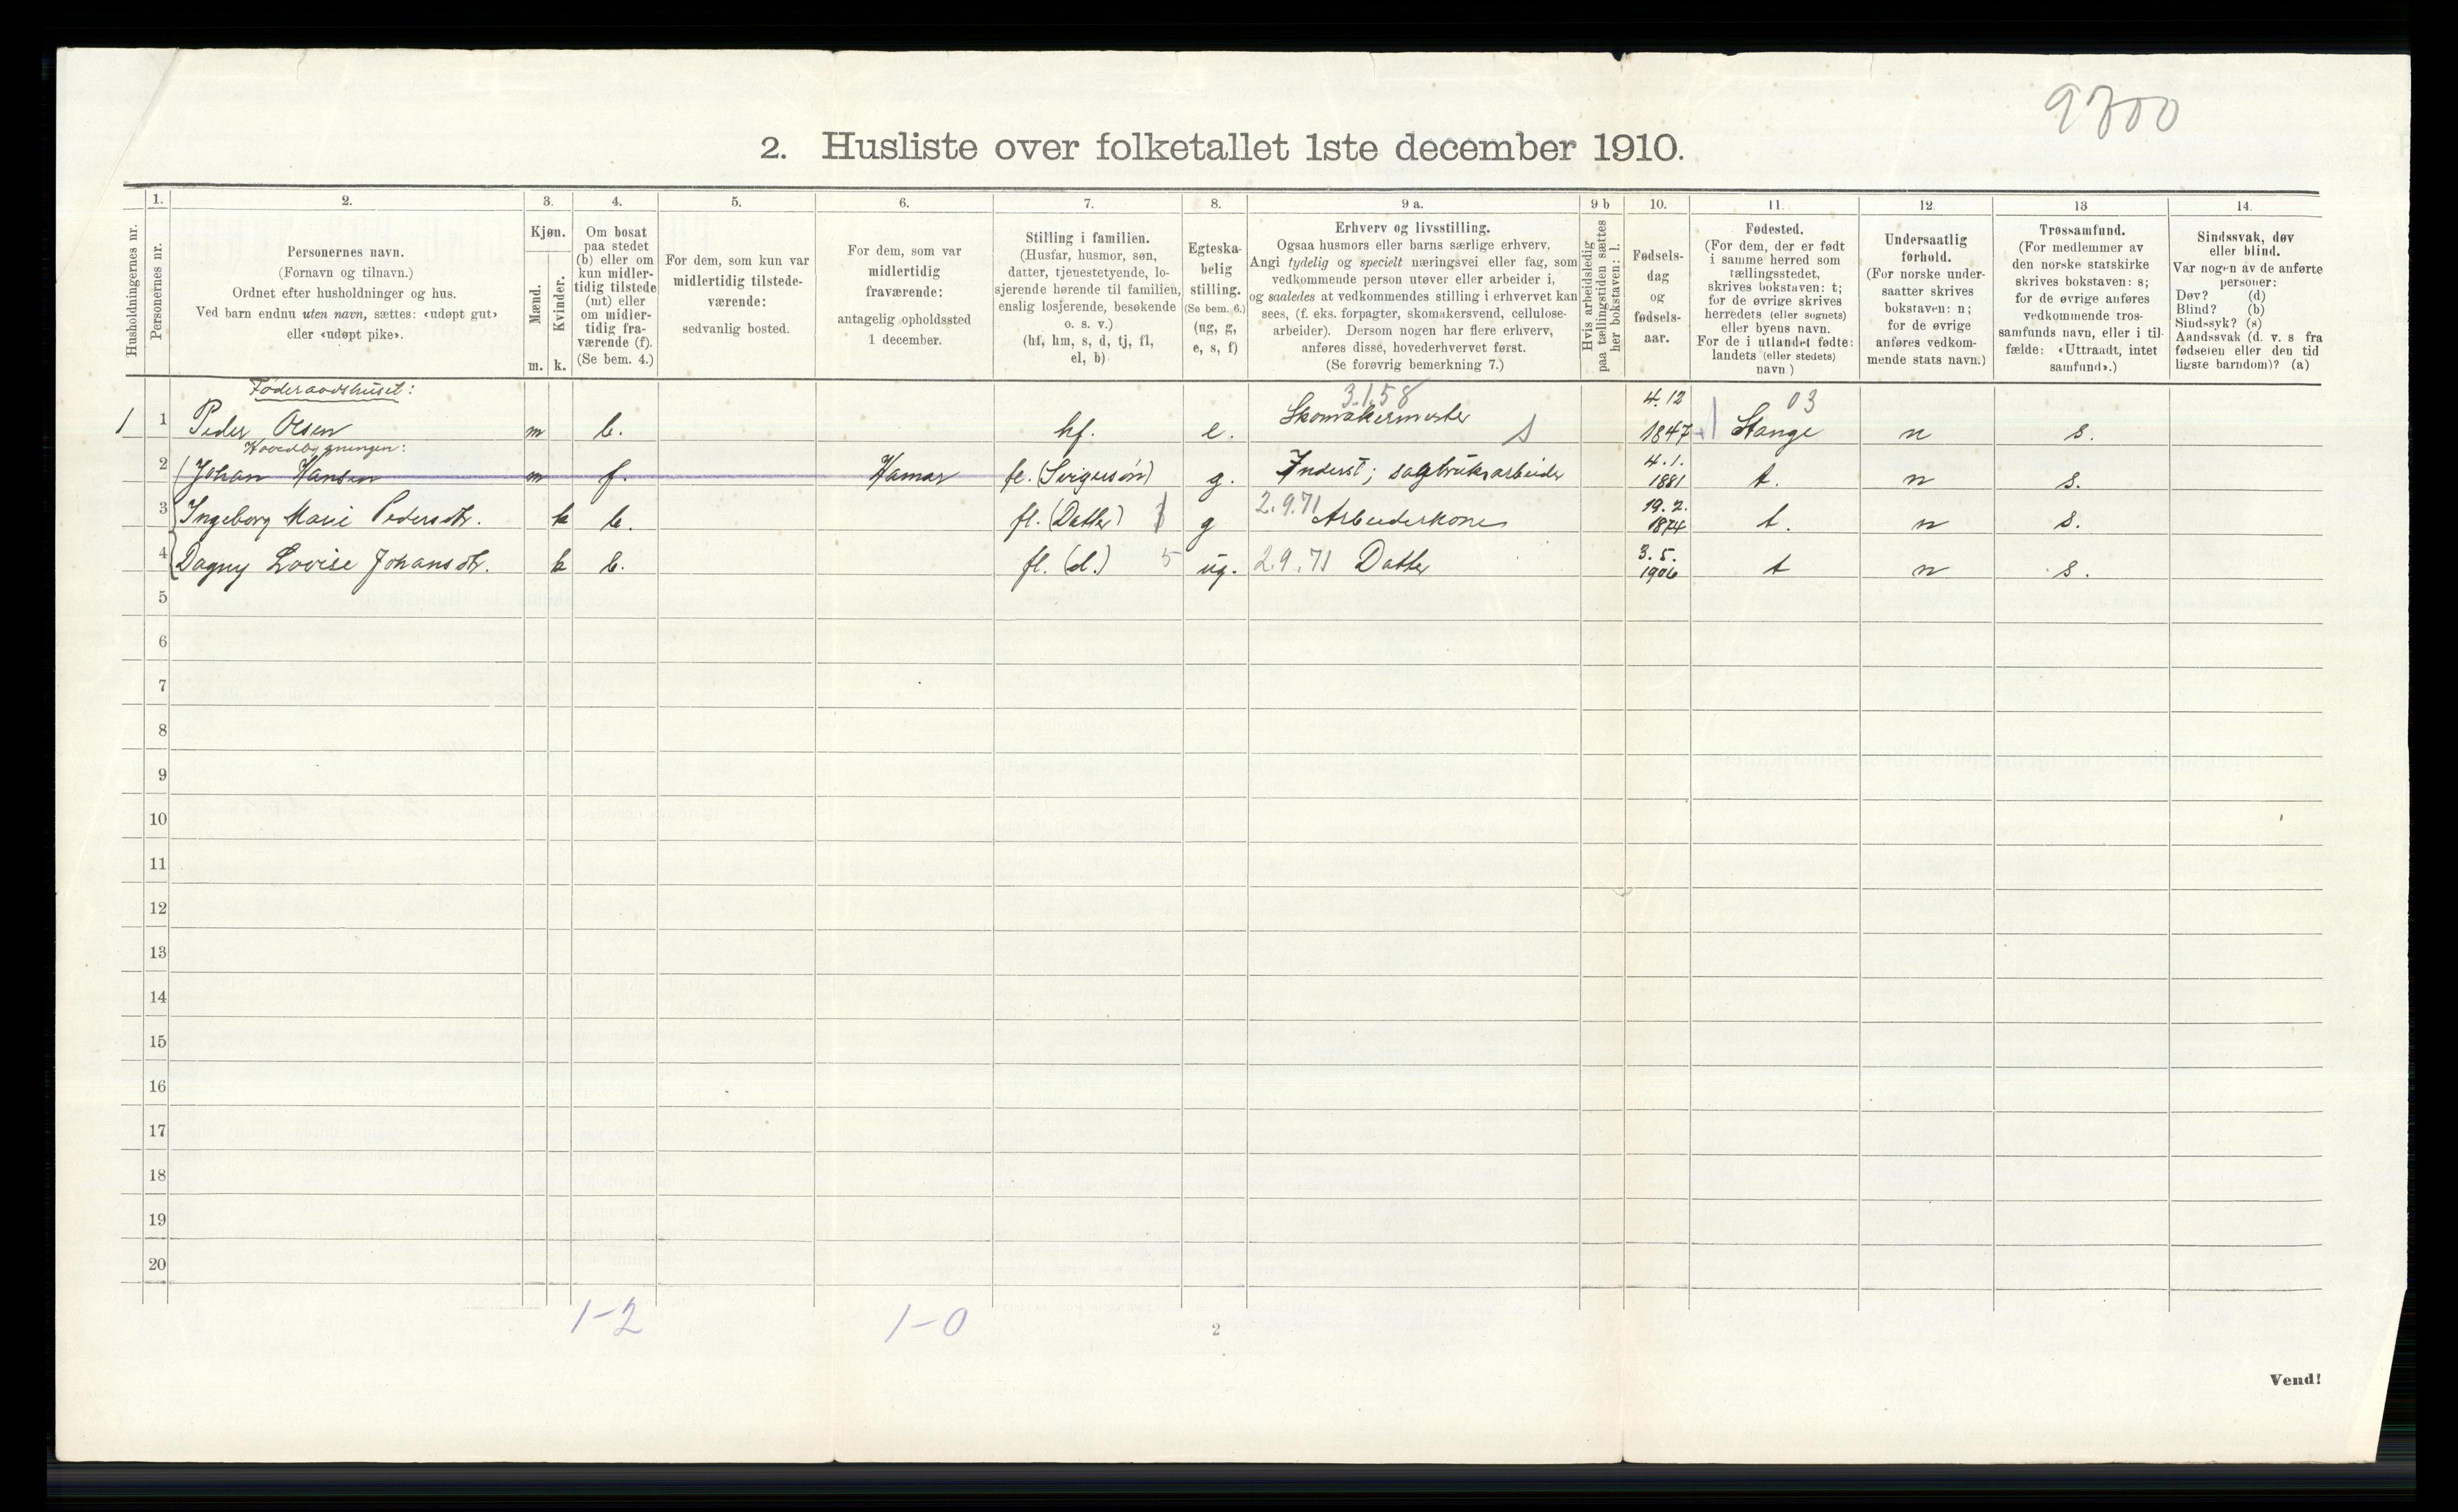 9700
2. Husliste over folketallet 1ste december 1910.
Husholdningernes nr.
1.
Personernes nr.
2.
Personernes navn.
(Fornavn og tilnavn.)
Ordnet efter husholdninger og hus.
Ved barn endnu uten navn, sættes: «udøpt gut»
eller «udøpt pike».
3.
Kjøn.
Mænd.
Kvinder.
m. k.
4.
Om bosat
paa stedet
(b) eller om
kun midler-
tidig tilstede
(mt) eller
om midler-
tidig fra-
værende (f).
(Se bem. 4.)
5.
For dem, som kun var
midlertidig tilstede-
værende:
sedvanlig bosted.
6.
For dem, som var
midlertidig
fraværende:
antagelig opholdssted
1 december.
7.
Stilling i familien.
(Husfar, husmor, søn,
datter, tjenestetyende, lo-
sjerende hørende til familien,
enslig losjerende, besøkende
o. s. v.)
(hf, hm, s, d, tj, fl,
el, b)
8.
Egteska-
belig
stilling.
(Se bem. 6.)
(ug, g,
e, s, f)
9 a.
Erhverv og livsstilling.
Ogsaa husmors eller barns særlige erhverv.
Angi tydelig og specielt næringsvei eller fag, som
vedkommende person utøver eller arbeider i,
og saaledes at vedkommendes stilling i erhvervet kan
sees, (f. eks. forpagter, skomakersvend, cellulose-
arbeider). Dersom nogen har flere erhverv,
anføres disse, hovederhvervet først.
(Se forøvrig bemerkning 7.)
9 b
Hvis arbeidsledig
paa tællingstiden sættes
her bokstaven: l.
10.
Fødsels-
dag
og
fødsels-
aar.
11.
Fødested.
(For dem, der er født
i samme herred som
tællingsstedet,
skrives bokstaven: t;
for de øvrige skrives
herredets (eller sognets)
eller byens navn.
For de i utlandet fødte:
landets (eller stedets)
navn.)
12.
Undersaatlig
forhold.
(For norske under-
saatter skrives
bokstaven: n;
for de øvrige
anføres vedkom-
mende stats navn.)
13
Trossamfund.
(For medlemmer av
den norske statskirke
skrives bokstaven: s;
for de øvrige anføres
vedkommende tros-
samfunds navn, eller i til-
fælde: «Uttraadt, intet
samfund».)
14.
Sindssvak, døv
eller blind.
Var nogen av de anførte
personer:
Døv? (d)
Blind? (b)
Sindssyk? (s)
Aandssvak (d. v. s fra
fødselen eller den tid
ligste barndom)? (a)
Føderaadshuset:
1 1 Peder Olsen m b. hf. e. 3.1.58 Skomakermester s 4.12 1847 03 Stange n s.
Hovedbygningen:
2 Johan Hansen m f. Hamar fl. (Svigersøn) g. Inderst; sagbruksarbeider 4.1. 1881 t. n s.
3 Ingeborg Marie Pedersdtr. k b. fl. (Datter) g 2.9.71 Arbeiderkone 19.2. 1874 t. n s.
4 Dagny Lovise Johansdtr. k b. fl. (d.) 5 ug. 2.9.71 Datter 3.5. 1906 t n s.
5
6
7
8
9
10
11
12
13
14
15
16
17
18
19
20
1-2 1-0
2
Vend!